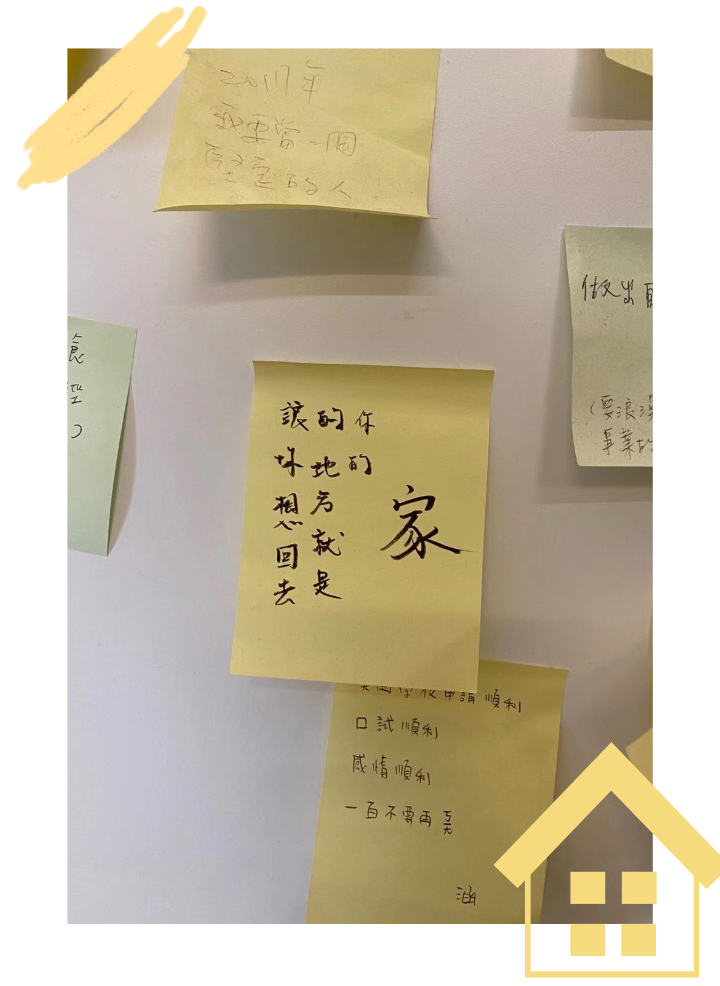 2017年
我要當一個
堅定的人!
做出
(要浪漫
事業的
讓妳想回去
的地方就是
你的
家
學校申請順利
口試順利
感情順利
不要再
涵